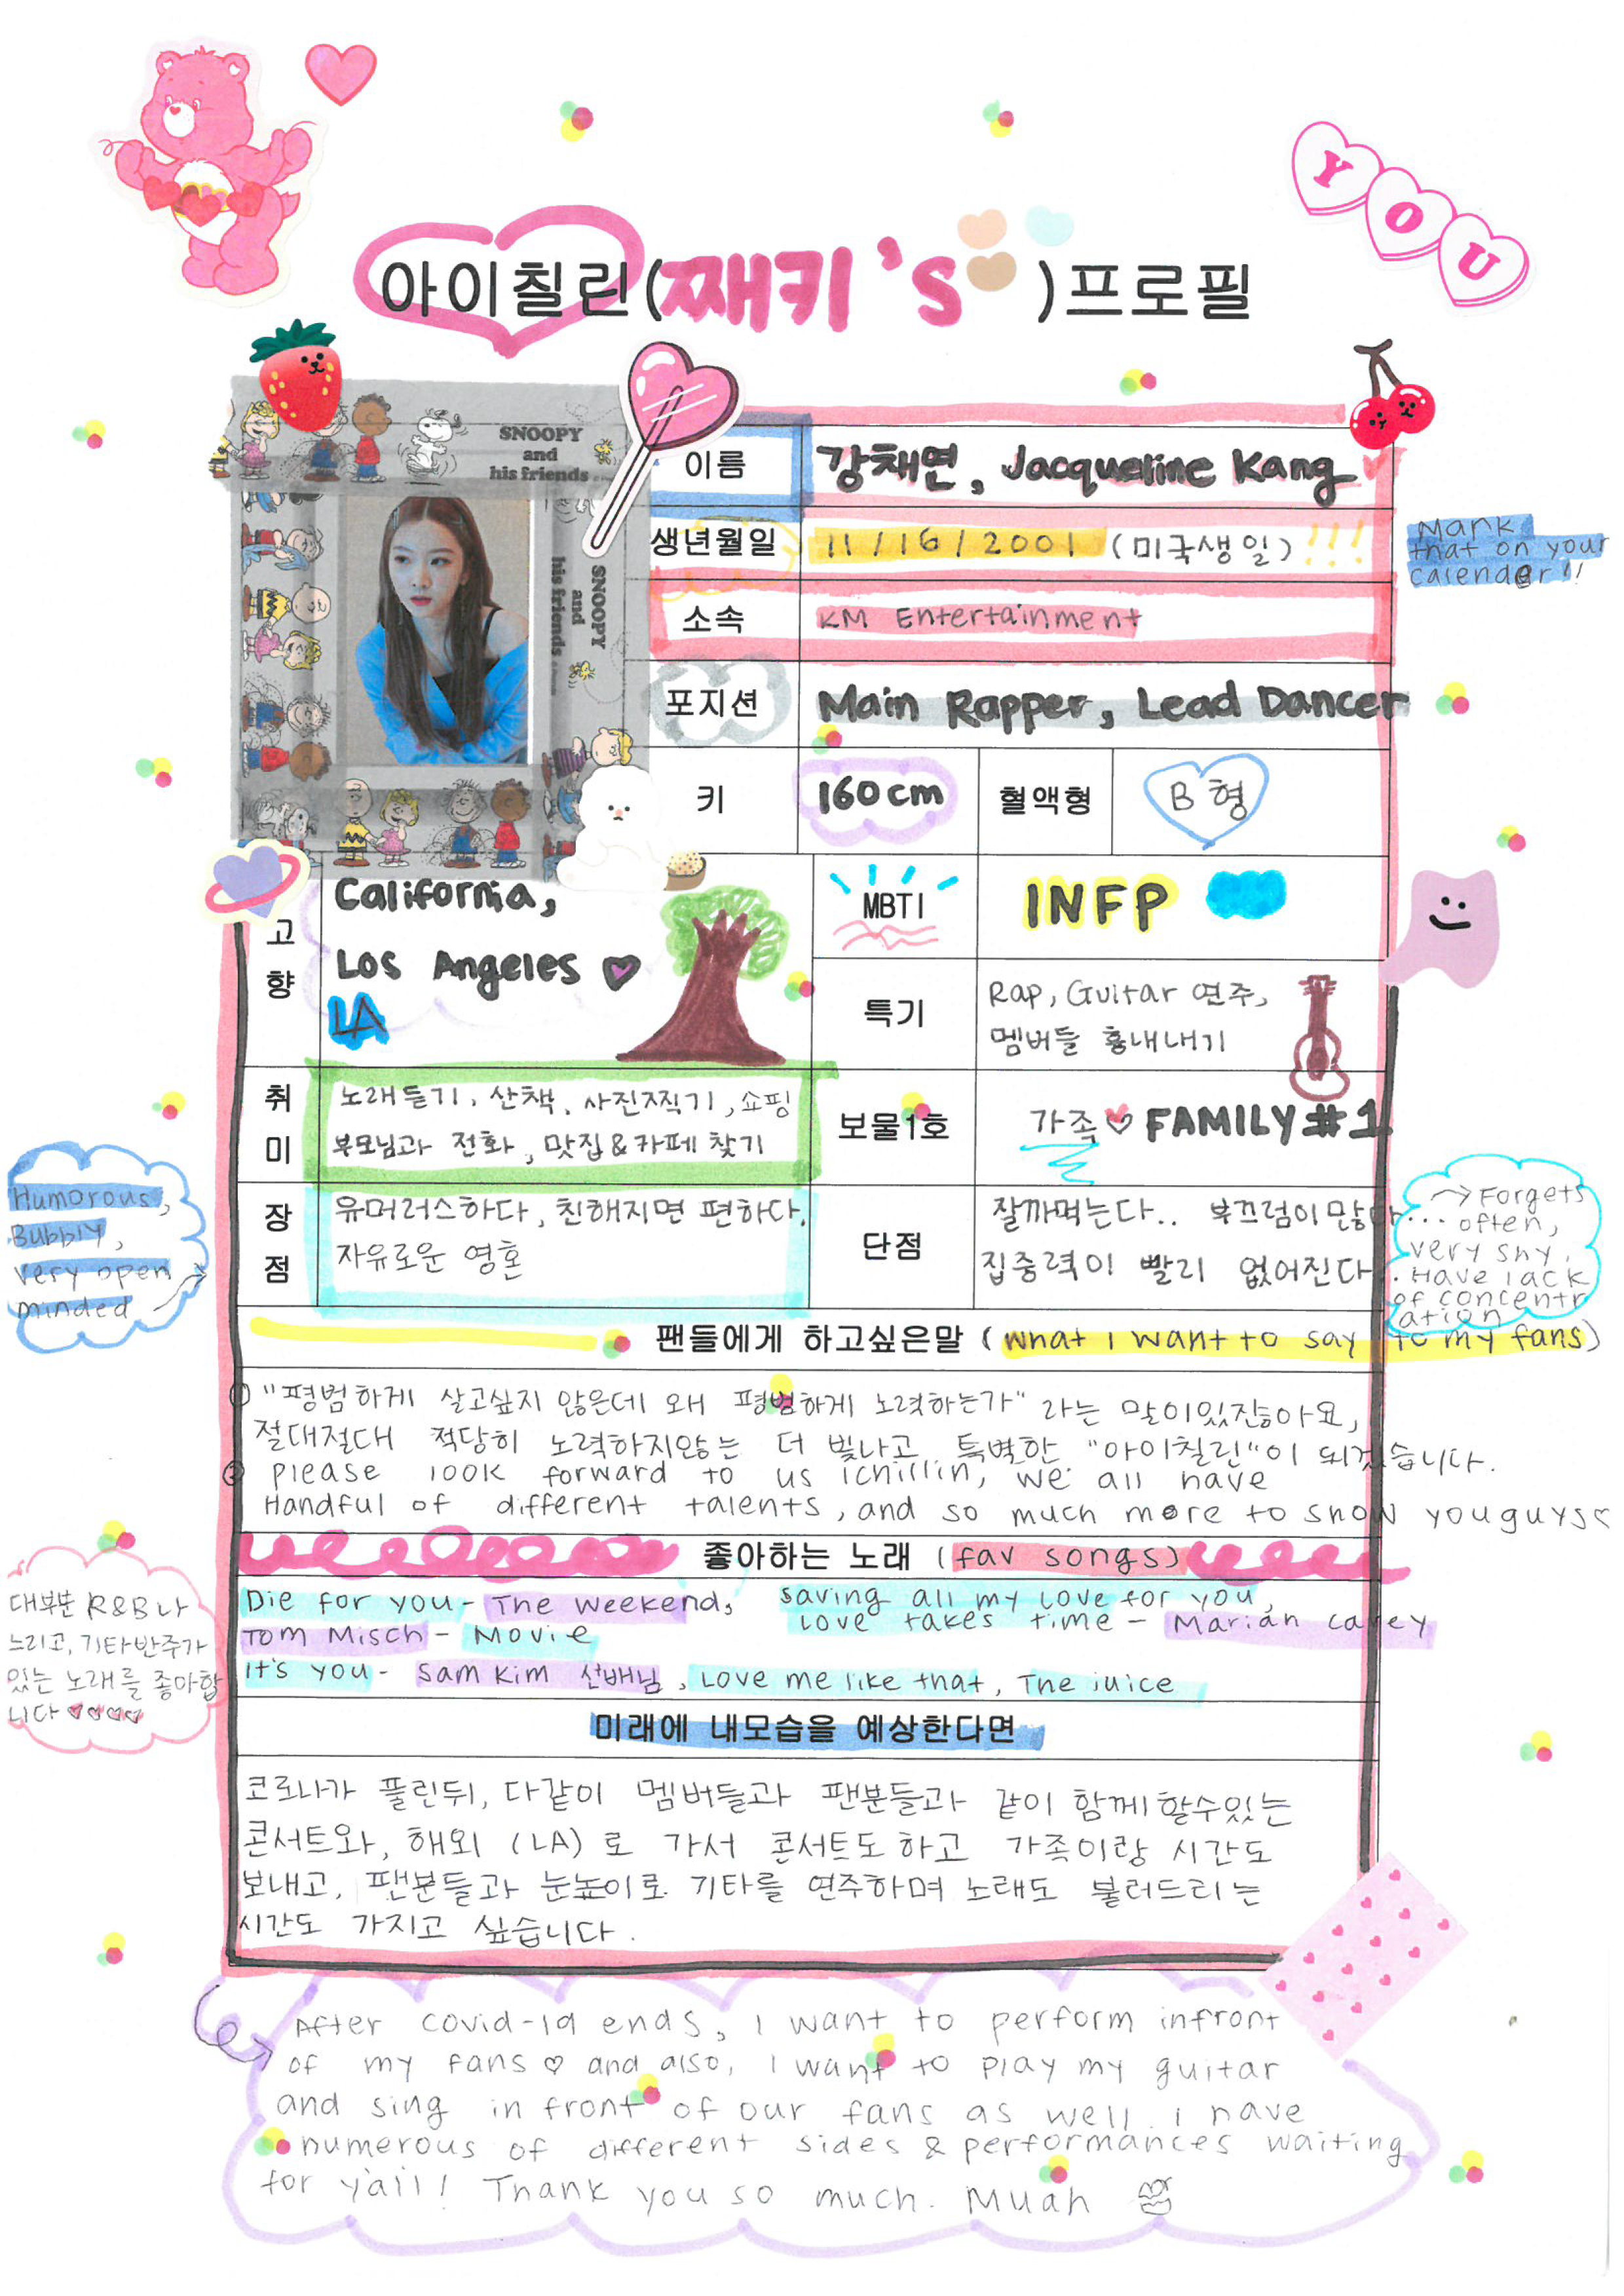 YOU
아이칠린(째키's )프로필
SNOOPY
and
his friends
SNOOPY
and
his friends
이름
강채연, Jacqueline Kang
생년월일
11/16/2001 (미국생일)!!!
Mark
that on your
calender!!
소속
KM Entertainment
포지션
Main Rapper, Lead Dancer
키
160cm
혈액형
B형
고향
California,
Los Angeles
LA
MBTI
INFP
특기
Rap, Guitar 연주,
멤버들 흉내내기
취미
노래듣기, 산책, 사진찍기, 쇼핑
부모님과 전화, 맛집&카페 찾기
보물1호
가족♡ FAMILY#1
장점
유머러스하다, 친해지면 편하다,
자유로운 영혼
Humorous,
Bubbly,
very open
minded
단점
잘까먹는다.. 부끄럼이 많다...
집중력이 빨리 없어진다.
→ Forgets
often,
very shy.
Have lack
of concentr
ation
팬들에게 하고싶은말 (what I want to say to my fans)
① "평범하게 살고싶지 않은데 왜 평범하게 노력하는가" 라는 말이있잖아요,
절대절대 적당히 노력하지않는 더 빛나고 특별한 "아이칠린"이 되겠습니다.
② please look forward to us ichillin, we all have
Handful of different talents, and so much more to show you guys♡
좋아하는 노래 (fav songs)
Die for you - The weekend, saving all my love for you,
love takes time - Mariah carey
Tom Misch - Movie
It's you - Sam Kim 선배님, Love me like that, The juice
대부분 R&B나
느리고, 기타반주가
있는 노래를 좋아합
니다 ♡♡♡♡
미래에 내모습을 예상한다면
코로나가 풀린뒤, 다같이 멤버들과 팬분들과 같이 함께할수있는
콘서트와, 해외 (LA)로 가서 콘서트도하고 가족이랑 시간도
보내고, 팬분들과 눈높이로 기타를 연주하며 노래도 불러드리는
시간도 가지고 싶습니다.
After covid-19 ends, I want to perform infront
of my fans ♡ and also, I want to play my guitar
and sing in front of our fans as well. I have
numerous of different sides & performances waiting
for y'all! Thank you so much. Muah